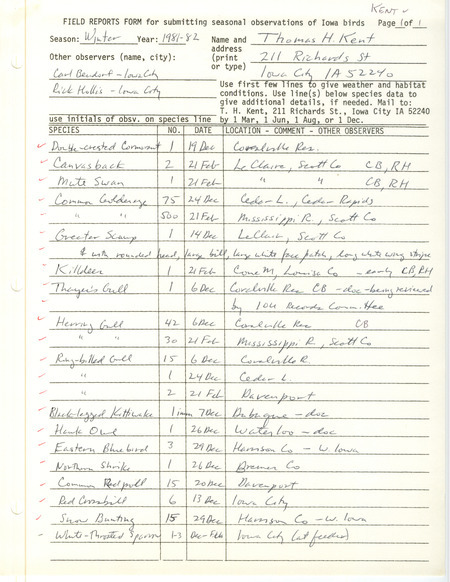 KENT
FIELD REPORTS FORM for submitting seasonal observations of Iowa birds Page 1 of 1
Season: Winter Year: 1981-82 Name and Thomas H. Kent
address
Other observers (name, city): (print 211 Richards St
or type)
Carl Bendorf - Iowa City Iowa City IA 52240
Rick Hollis - Iowa City
Use first few lines to give weather and habitat
conditions. Use line(s) below species data to
give additional details, if needed. Mail to:
T. H. Kent, 211 Richards St., Iowa City IA 52240
use initials of obsv. on species line by 1 Mar, 1 Jun, 1 Aug, or 1 Dec.
SPECIES NO. DATE LOCATION - COMMENT - OTHER OBSERVERS
Double-crested Cormorant 1 19 Dec Coralville Res.
Canvasback 2 21 Feb LeClaire, Scott Co CB, RH
Mute Swan 1 21 Feb " " CB, RH
Common Goldeneye 75 24 Dec Cedar L., Cedar Rapids
" " 500 21 Feb Mississippi R., Scott Co
Greater Scaup 1 14 Dec LeClaire, Scott Co
♀ with rounded head, large bill, large white face patch, long white wing stripe
Killdeer 1 21 Feb Cone M, Louisa Co - early CB, RH
Thayer's Gull 1 6 Dec Coralville Res CB - doc - being reviewed
by IOU Records Committee
Herring Gull 42 6 Dec Coralville Res CB
30 21 Feb Mississippi R, Scott Co
Ring-billed Gull 15 6 Dec Coralville R.
" 1 24 Dec Cedar L.
" 2 21 Feb Davenport
Black-legged Kittiwake 1 imm 7 Dec Dubuque - doc
Hawk Owl 1 26 Dec Waterloo - doc
Eastern Bluebird 3 29 Dec Harrison Co - w. Iowa
Northern Shrike 1 26 Dec Bremer Co
Common Redpoll 15 20 Dec Davenport
Red Crossbill 6 13 Dec Iowa City
Snow Bunting 15 29 Dec Harrison Co - w. Iowa
White-Throated Sparrow 1-3 Dec-Feb Iowa City (at feeder)